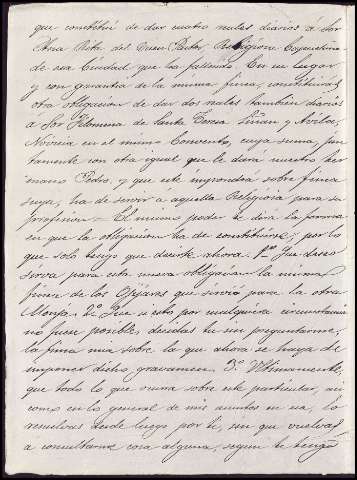 que constituí de dar cuatro reales diarios á Sor
Ana Rita del Buen Pastor, Religiosa Capuchina
de esa Ciudad que ha fallecido. En su lugar
y con garantia de la misma finca, constituirás
otra obligacion de dar dos reales tambien diarios
á Sor Filomena de Santa Teresa Liñan y
Novicia en el mismo Convento, cuya suma, jun-
tamente con otra igual que le dará nuestro her-
mano Pedro, y que este impondrá sobre finca
suya, ha de servir á aquella Religiosa para su
profesion = El mismo poder te dirá la forma
en que la obligacion ha de constituirse; por lo
que solo tengo que decirte ahora. 1º Que deseo
sirva para esta nueva obligacion la misma
finca de los que sirvió para la otra
Monja. 2º Que si esto por cualquiera circunstancia
no fuese posible, decidas tu sin preguntarme,
la finca mia sobre la que ahora se haya de
imponer dicho gravamen. 3º Ultimamente,
que todo lo que ocurra sobre este particular, asi
como en lo general de mis asuntos en esa, lo
resuelvas desde luego por ti, sin que vuelvas
a consultarme cosa alguna, segun te tengo